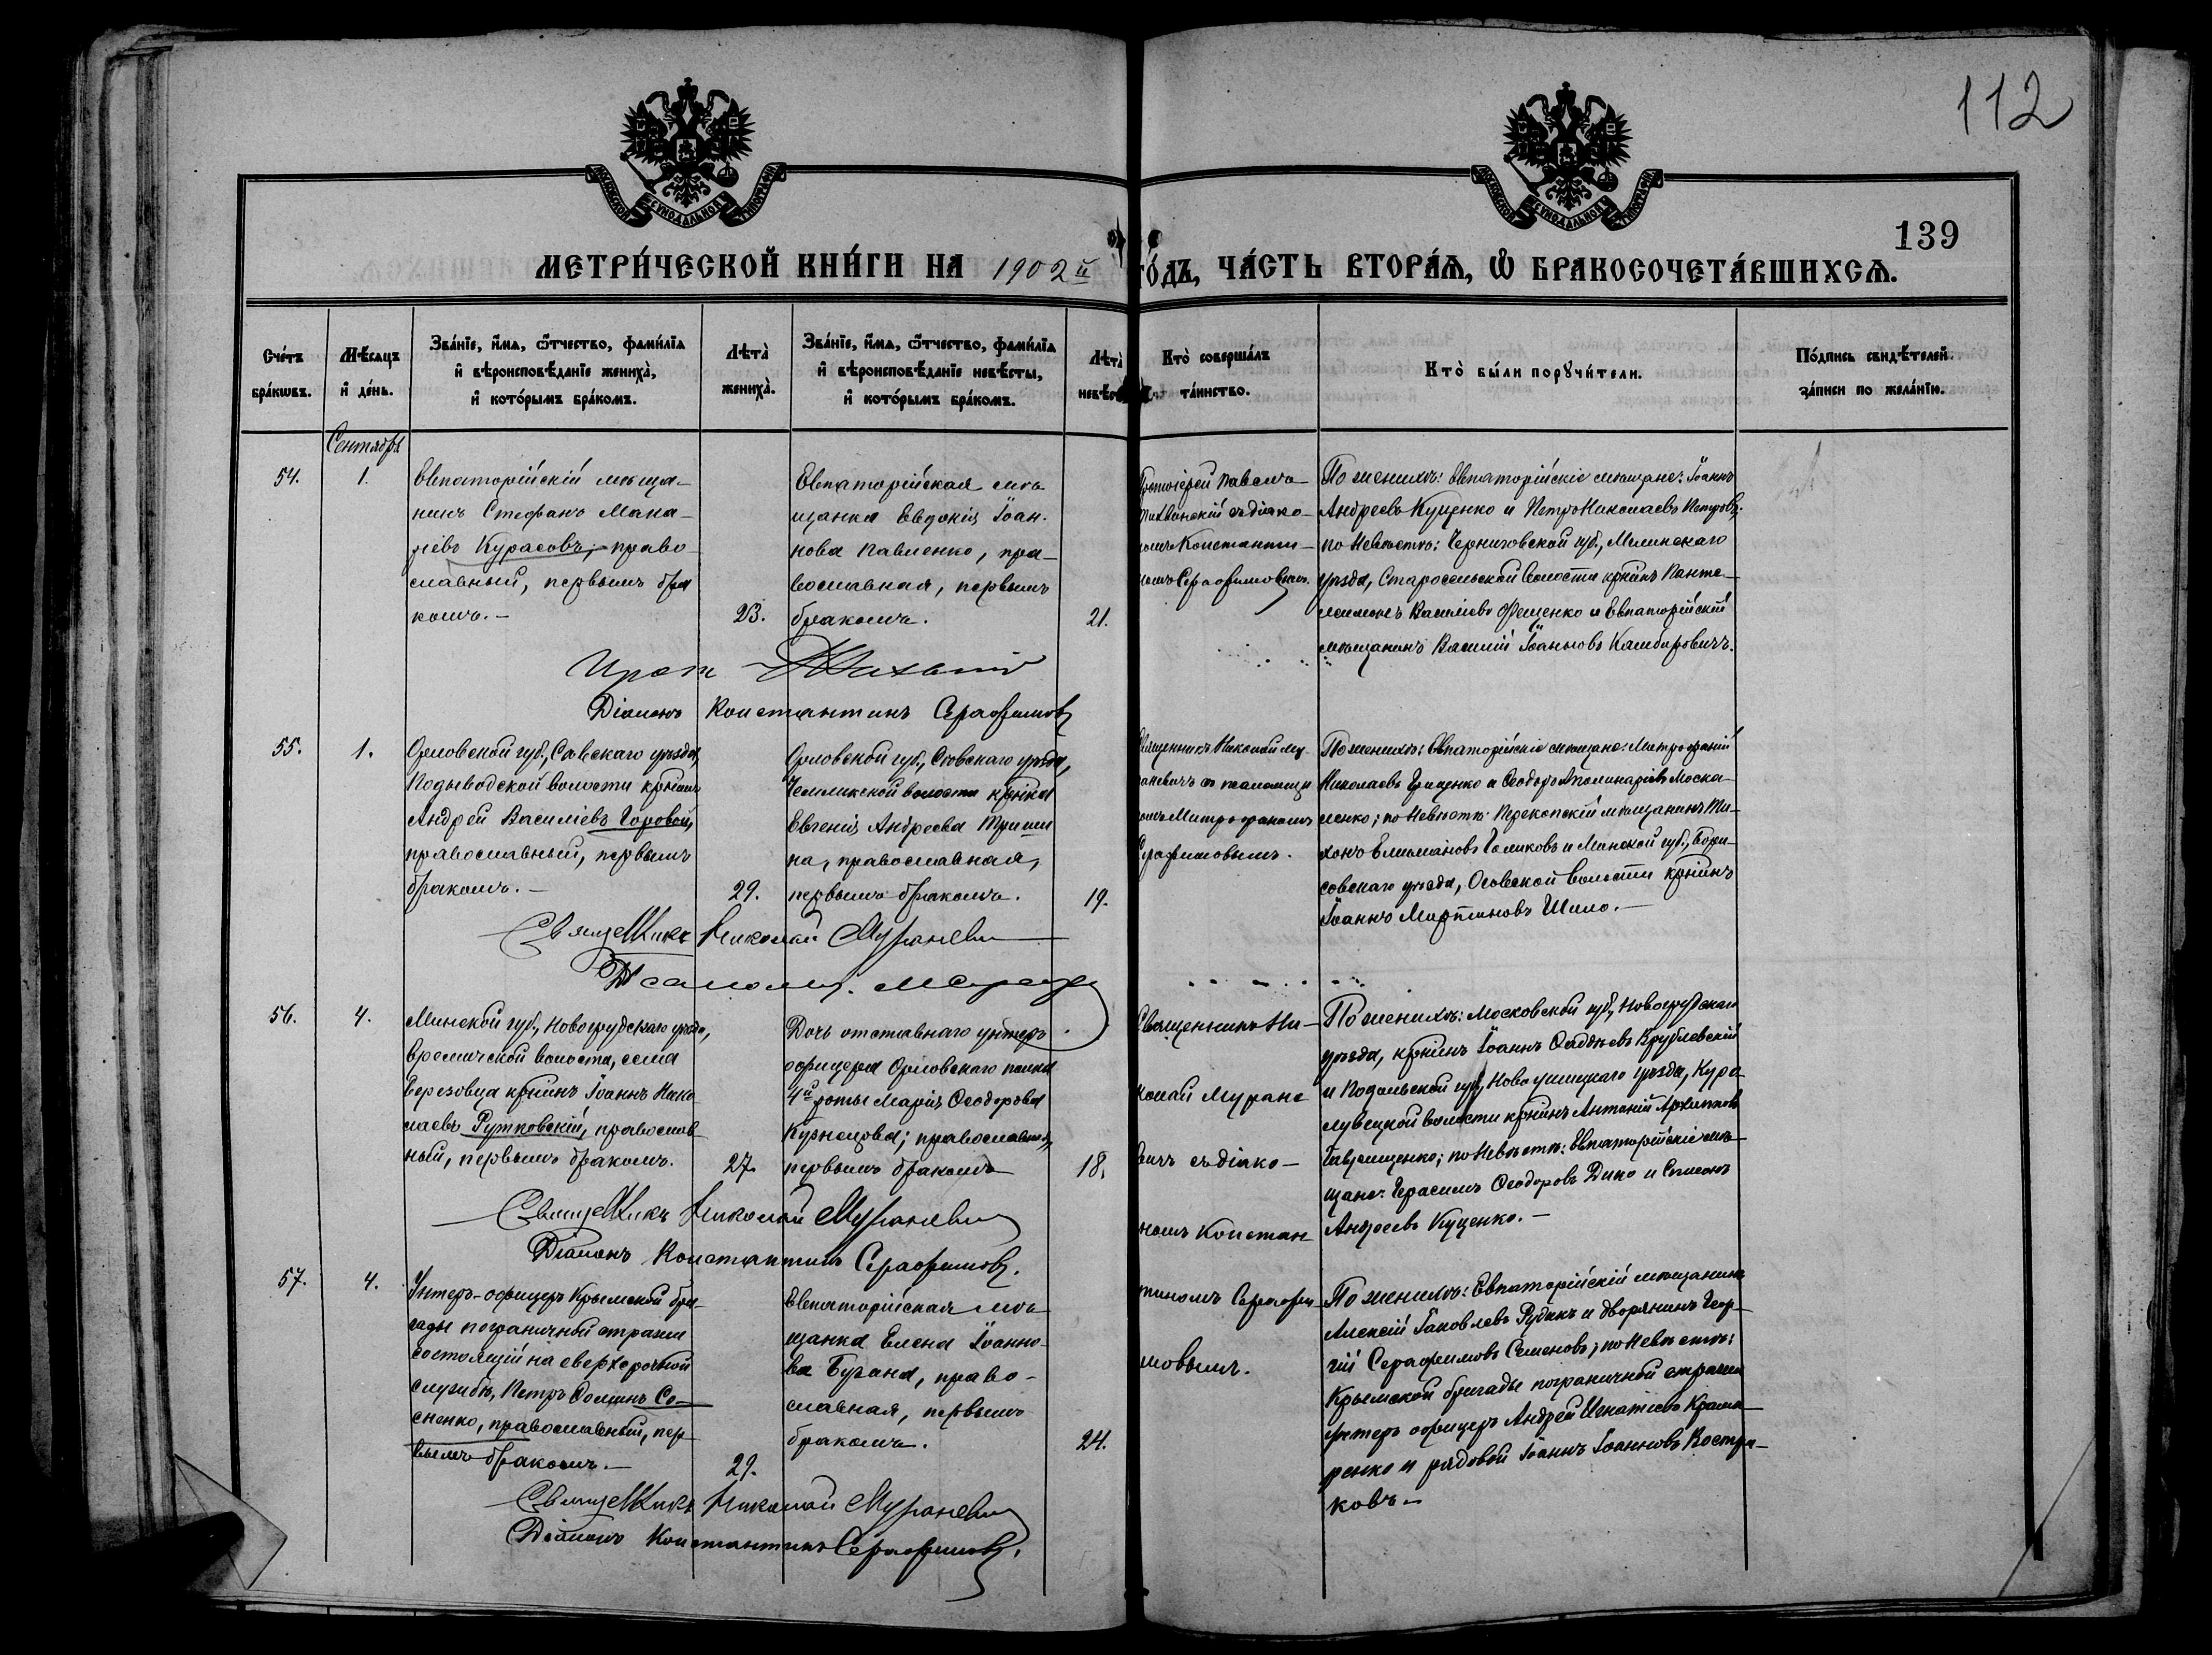 112
139
МЕТРИ́ЧЕСКОЙ КНИ́ГИ НА 1902й ГО́ДЪ, ЧА́СТЬ ВТОРА́Я, Ѡ БРАКОСОЧЕТА́ВШИХСЯ.
Сче́тъ бра́ковъ.
Мѣ́сяцъ и де́нь.
Зва́нїе, и҆́мя, ѻ҆́тчество, фами́лїя и҆ вѣроисповѣ́данїе жениха̀, и҆ кото́рымъ бра́комъ.
Лѣта̀ жениха̀.
Зва́нїе, и҆́мя, ѻ҆́тчество, фами́лїя и҆ вѣроисповѣ́данїе невѣ́сты, и҆ кото́рымъ бра́комъ.
Лѣта̀
Кто̀ соверша́лъ та́инство.
Кто̀ бы́ли порꙋчи́тели.
По́дпись свидѣ́телей за́писи по жела́нїю.
Сентябрь
54.
1.
Евпаторійскій мѣща-
нинъ Стефанъ Мака-
ріевъ Курасовъ, право-
славный, первымъ бра
комъ.-
23.
Евпаторійская мѣ
щанка Евдокія Іоан-
нова Павленко, пра-
вославная, первымъ
бракомъ.
21.
Протоіерей Павелъ
Тихвинскій съ діако-
номъ Константи-
номъ Серафимовымъ.
По женихѣ: Евпаторійскіе мѣщане: Іоаннъ
Андреевъ Куценко и Петръ Николаевъ Петровъ;
по Невѣстѣ: Черниговской губ., Мглинскаго
уѣзда, Старосельской волости кр-нинъ Панте-
леимонъ Василіевъ Фещенко и Евпаторійскій
мѣщанинъ Василій Іоанновъ Камбировичъ.
Прот
Діаконъ Константинъ Серафимовъ
55.
1.
Орловской губ., Сѣвскаго уѣзда,
Подыводской волости кр-нинъ
Андрей Василіевъ Горовой,
православный, первымъ
бракомъ.-
29.
Орловской губ., Сѣвскаго уѣзда,
волости кр-нка
Евгенія Андреева Триши
на, православная,
первымъ бракомъ.
19.
Священникъ Николай Му-
раневичъ съ псаломщи
комъ Митрофаномъ
Серафимовымъ.
По женихѣ: Евпаторійскіе мѣщане: Митрофаній
Николаевъ Гриценко и Ѳеодоръ Аполинаріевъ Моска-
ленко; по Невѣстѣ: Перекопскій мѣщанинъ Ти-
хонъ Голиковъ и Минской губ., Бори-
совскаго уѣзда, Осовской волости кр-нинъ
Іоаннъ Мартиновъ Шило.-
Священникъ Николай Мураневич
Псаломщ.
56.
4.
Минской губ., Новогрудскаго уѣзда,
Еремичской волости, села
Березовца кр-нинъ Іоаннъ Нико
лаевъ Рутковскій, православ
ный, первымъ бракомъ.
27.
Дочь отставнаго унтеръ
офицера Орловскаго полка
4й роты Марія Ѳеодорова
Кузнецова; православная,
первымъ бракомъ
18.
Священникъ Ни-
колай Муране
вичъ съ діако-
номъ Констан
тиномъ Серафи-
мовымъ.
По женихѣ: Московской губ., Новогрудскаго
уѣзда, кр-нинъ Іоаннъ Ѳаддѣевъ Врублевскій
и Подольской губ., Новоушицкаго уѣзда, Кура-
ловецкой волости кр-нинъ Антоній Архиповъ
Гаврищенко; по Невѣстѣ: Евпаторійскіе мѣ-
щане: Герасимъ Ѳеодоровъ Дико и Симеонъ
Андреевъ Куценко.-
Священникъ Николай Мураневич
Діаконъ Константинъ Серафимовъ.
57.
4.
Унтеръ-офицеръ Крымской бри-
гады пограничной стражи
состоящій на сверхсрочной
службѣ, Петръ Ѳоминъ Со-
сненко, православный, пер-
вымъ бракомъ.-
29.
Евпаторійская мѣ
щанка Елена Іоанно-
ва Бугана, право-
славная, первымъ
бракомъ.
24.
По женихѣ: Евпаторійскій мѣщанинъ
Алексій Іаковлевъ Рудикъ и дворянинъ Геор-
гій Серафимовъ Семеновъ; по Невѣстѣ:
Крымской бригады пограничной стражи
унтеръ офицеръ Андрей Игнатіевъ Крама-
ренко и рядовой Іоаннъ Іоанновъ Востри-
ковъ.-
Священникъ Николай Мураневич
Діаконъ Константинъ Серафимовъ.